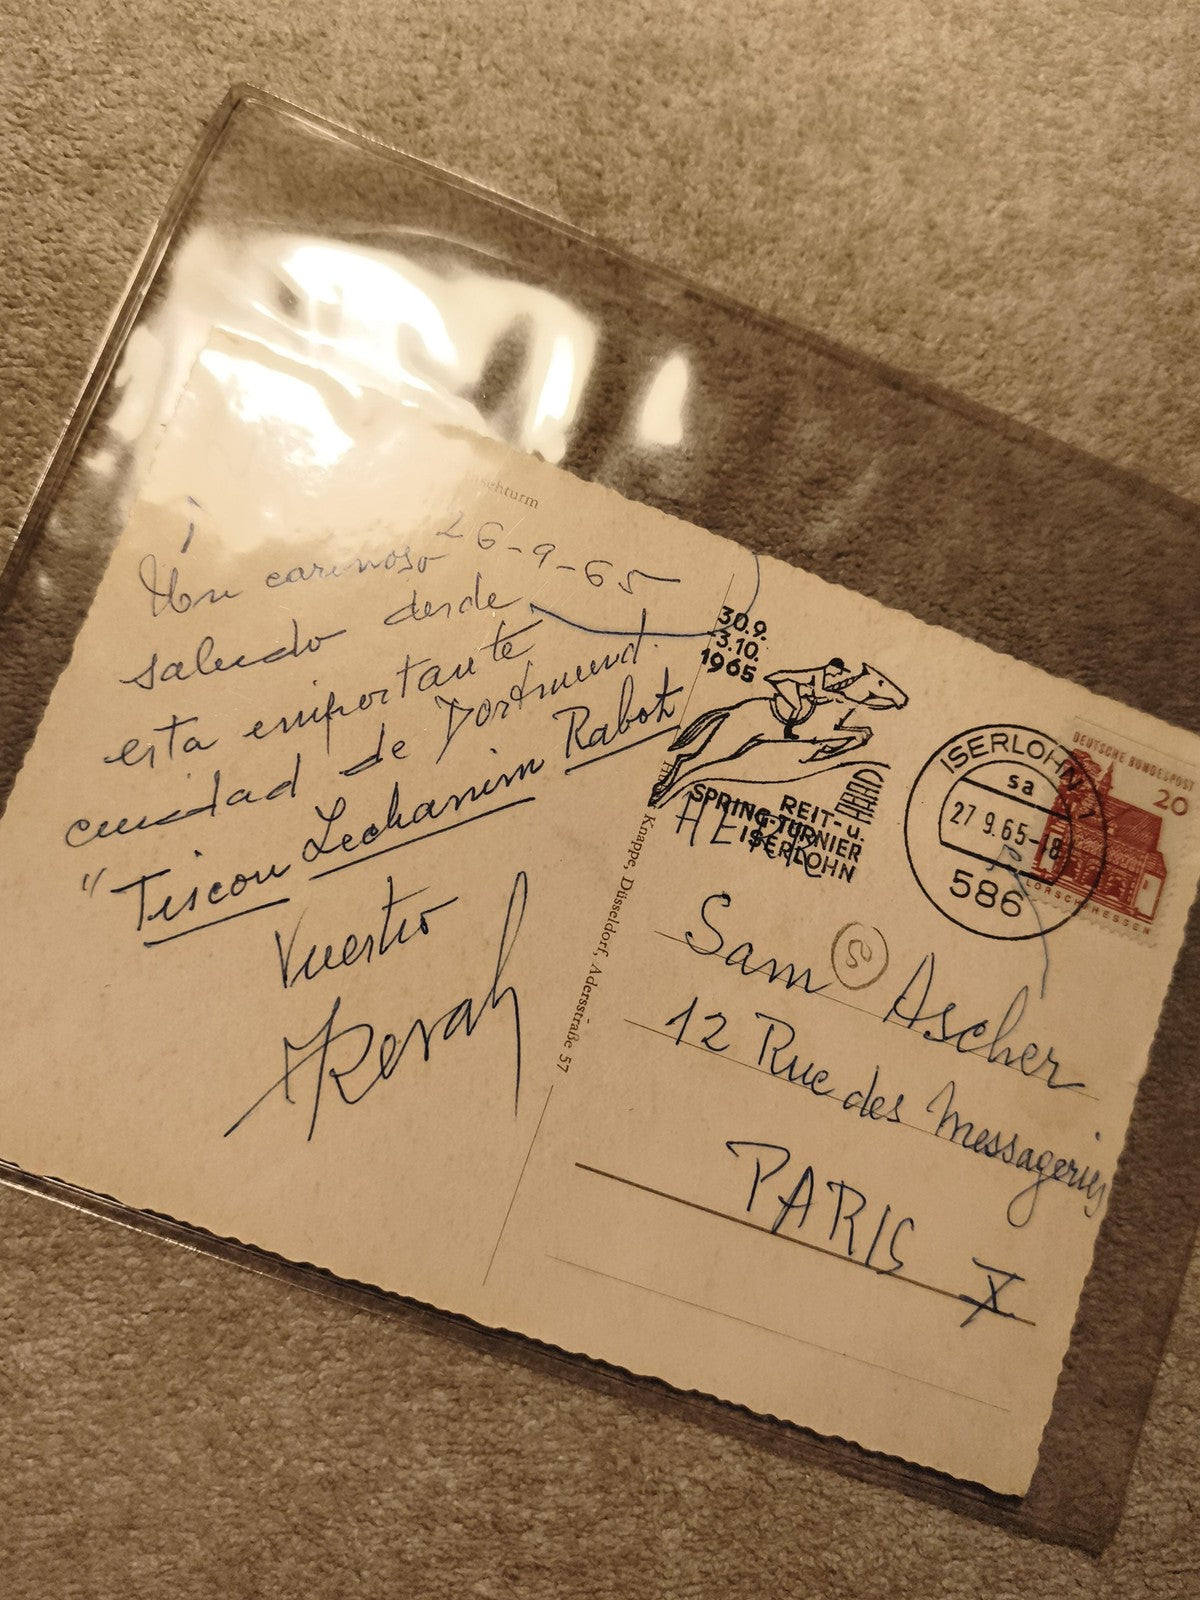 schturm
26-9-65
Un carinoso
saludo desde
esta importante
ciudad de Dortmund.
"Tiscou Lechanim Rabot
Vuestro
Revah
Knappe, Düsseldorf, Adersstraße 57
30.9.
-3.10.
1965
REIT- u.
SPRING-TURNIER
ISERLOHN
ISERLOHN 1
sa
27.9.65-18
586
DEUTSCHE BUNDESPOST
20
LORSCH/HESSEN
Sam Ascher
12 Rue des Messageries
PARIS X